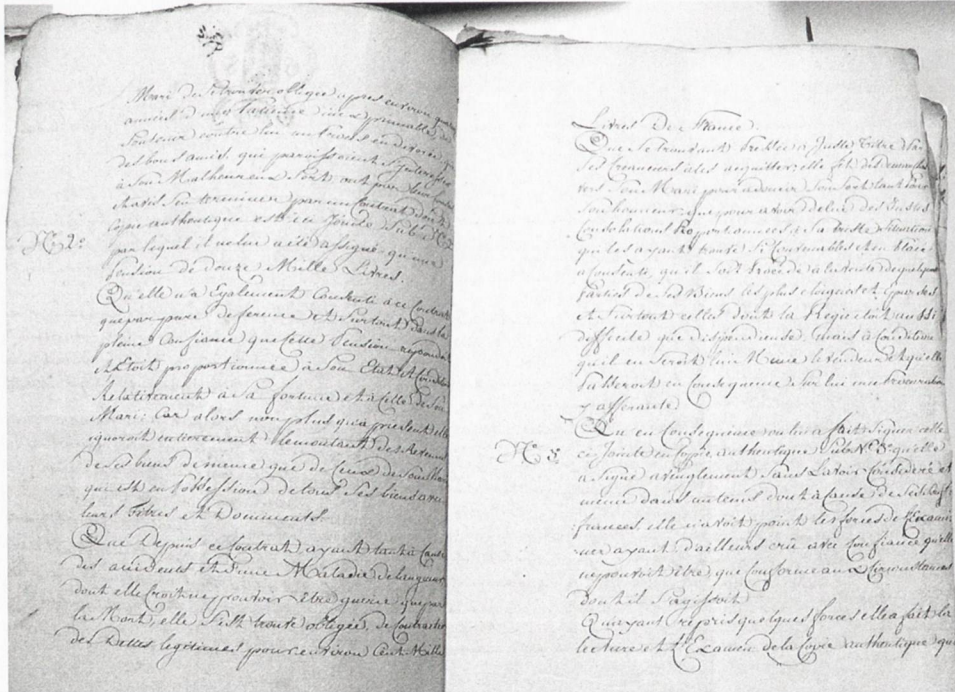 Mari de se trouver obligée apres environ
années d'une
soutenir contre lui un procès en divorce
des bons amis, que paroissoient s'interesser
à son Malheureux Sort, ont par leur
charité fin terminer par un contrat dont
copie authentique est ici jointe sub N° 2
N° 2°
par lequel il ne lui a été assigné qu'une
Pension de douze Mille Livres.
Qu'elle n'a Egalement Consenti à ce Contrat
que par pure deference et Surtout dans la
pleine Confiance que cette Pension repondoit
et Etoit proportionnée à Son Etat et Condition
Relativement à sa fortune et à celle de Son
Mari; Car alors non plus qu'à présent elle
ignoroit entierement le montant des Revenus
de ses biens de meme que de ceux de son Mari
qui est en Possession de tous Ses biens avec
leurs Titres et Documents.
Que Depuis ce Contrat ayant tant à Cause
des accidents et d'une Maladie de langueur
dont elle croit ne pouvoir être guerie que par
la Mort, elle s'est trouvé obligée, de Contracter
des Dettes legitimes pour environ Cent Mille
Livres De France.
Que Se trouvant Pressée à Juste Titre par
Ses Creanciers à les acquitter; elle fit des demarches
vers Son Mari pour adoucir Son Sort tant pour
Son honneur; que pour avoir de lui des Justes
Consolations Proportionnées à Sa triste Situation
que les ayant trouvé Si Convenables et en
a Consenti, qu'il Soit procedé à la vente de quelques
Parties de Ses Biens les plus eloignés et eparses,
et Surtout celles dont la Regie étoit aussi
difficile que dispendieuse, mais à Condition
qu'il en Seroit lui Meme le vendeur et qu'elle
passeroit en Consequence Sur lui une Procuration
y afferante.
N° 3.
Qu'en Consequence on lui a fait Signer celle
ci jointe en Copie authentique Sub N° 3° qu'elle
a Signé aveuglement Sans L'avoir Considerée et
meme dans un tems dont à Cause de Ses Souf=
frances elle n'avoit point les forces de l'Exami=
ner ayant d'ailleurs crû avec Confiance qu'elle
ne pouvoit être, que Conforme aux Circonstances
dont il S'agissoit.
Qu'ayant repris quelques forces elle a fait la
lecture et L'Examen de la Copie authentique qui